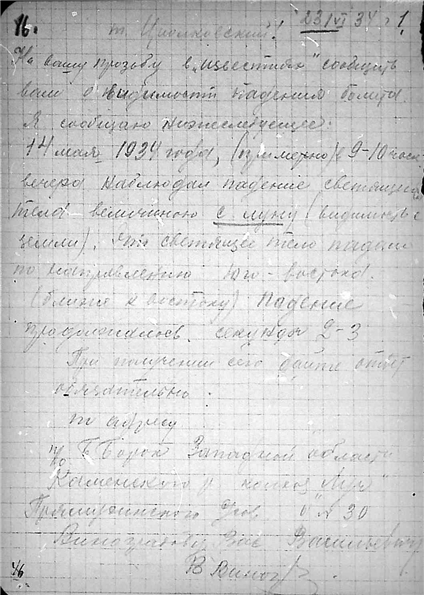 16. т. Циолковский! 23/VI 34 г 1.
На вашу прозьбу в „известиях" сообщить
вам о видимости падения болида.
Я сообщаю нижеследующее:
14 мая 1934 года, (примерно) в 9-10 час.
вечера наблюдал падение светящего
тела величиною с луну (видимость с
земли). Это светящее тело падало
по направлению юго-востока.
(ближе к востоку) Падение
продолжалось секунды 2-3
При получении сего дайте ответ
обязательно.
по адресу
п/о Б-Борок Западной области
Каменского р колхоз
30
Виноградову Вас Васильевичу
В Виног
46.